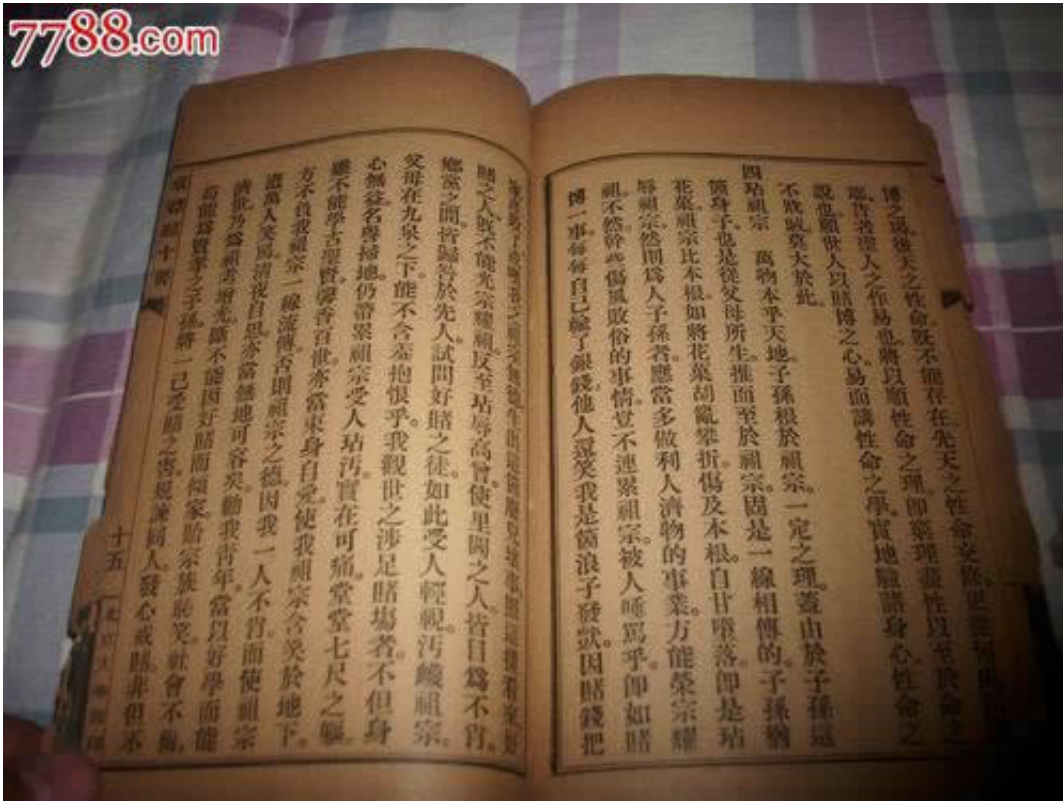 7788.com
博之場後天之性命既不能存在先天之性命
耶昔者聖人之作易也將以順性命之理即窮理盡性以至於命之
說也願世人以賭博之心易而講性命之學實地驗諸身心性命之
不戕賊莫大於此。
四玷祖宗 萬物本乎天地子孫根於祖宗一定之理。蓋由於子孫這
箇身子也是從父母所生推而至於祖宗固是一線相傳的。子孫猶
花菓祖宗比本根如將花菓胡亂攀折傷及本根。自甘墮落。即是玷
辱祖宗。然則為人子孫者應當多做利人濟物的事業。方能榮宗耀
祖。不然幹些傷風敗俗的事情。豈不連累祖宗。被人唾罵乎。即如賭
博一事每每自己輸了銀錢他人還笑我是箇浪子發獃。因賭錢把
賭之人既不能光宗耀祖。反至玷辱高曾。使里閭之人。皆目為不肖。
鄉黨之間。皆歸咎於先人。試問好賭之徒。如此受人輕視。汚衊祖宗。
父母在九泉之下。能不含羞抱恨乎。我觀世之涉足賭場者。不但身
心無益。名譽掃地。仍帶累祖宗受人玷汚。實在可痛。堂堂七尺之軀。
雖不能學古聖賢。馨香百世。亦當束身自愛。使我祖宗含笑於地下。
方不負我祖宗一線流傳。否則祖宗之德。因我一人不肖。而使祖宗
遭萬人笑罵。清夜自思。亦當無地可容矣。勸我青年。當以好學而能
濟世。乃為祖考增光。斷不能因好賭而傾家。貽宗族恥笑。社會不
苟能為賢孝之子孫。將一己受賭之害。規諫同人。發心戒賭。非但不
十五